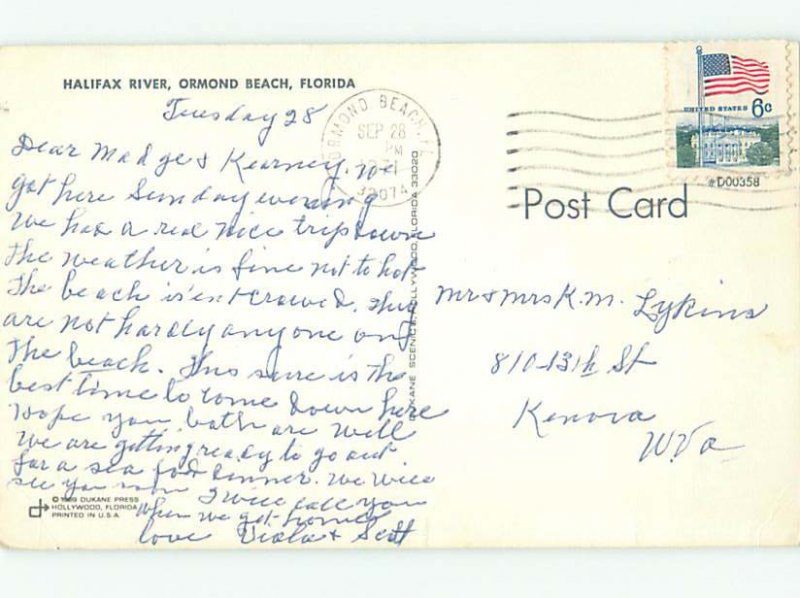 HALIFAX RIVER, ORMOND BEACH, FLORIDA
Tuesday 28
Dear Madge & Kearney. we
got here Sunday evening
we had a real nice trip down
The weather is fine not to hot
The beach is'ent crowed. They
are not hardly anyone on
The beach. This sure is the
best time to come down here
hope you both are well
we are getting ready to go out
for a sea food dinner. we will
see you I will call you
when we get home
love Viola & Scott
© 1969 DUKANE PRESS
HOLLYWOOD, FLORIDA
PRINTED IN U.S.A.
ORMOND BEACH, FL
SEP 28
PM
1971
32074
DUKANE SCENICS, HOLLYWOOD, FLORIDA 33020
UNITED STATES 6c
#D00358
Post Card
Mr & Mrs K. M. Lykins
810-13th St
Kenova
W. Va